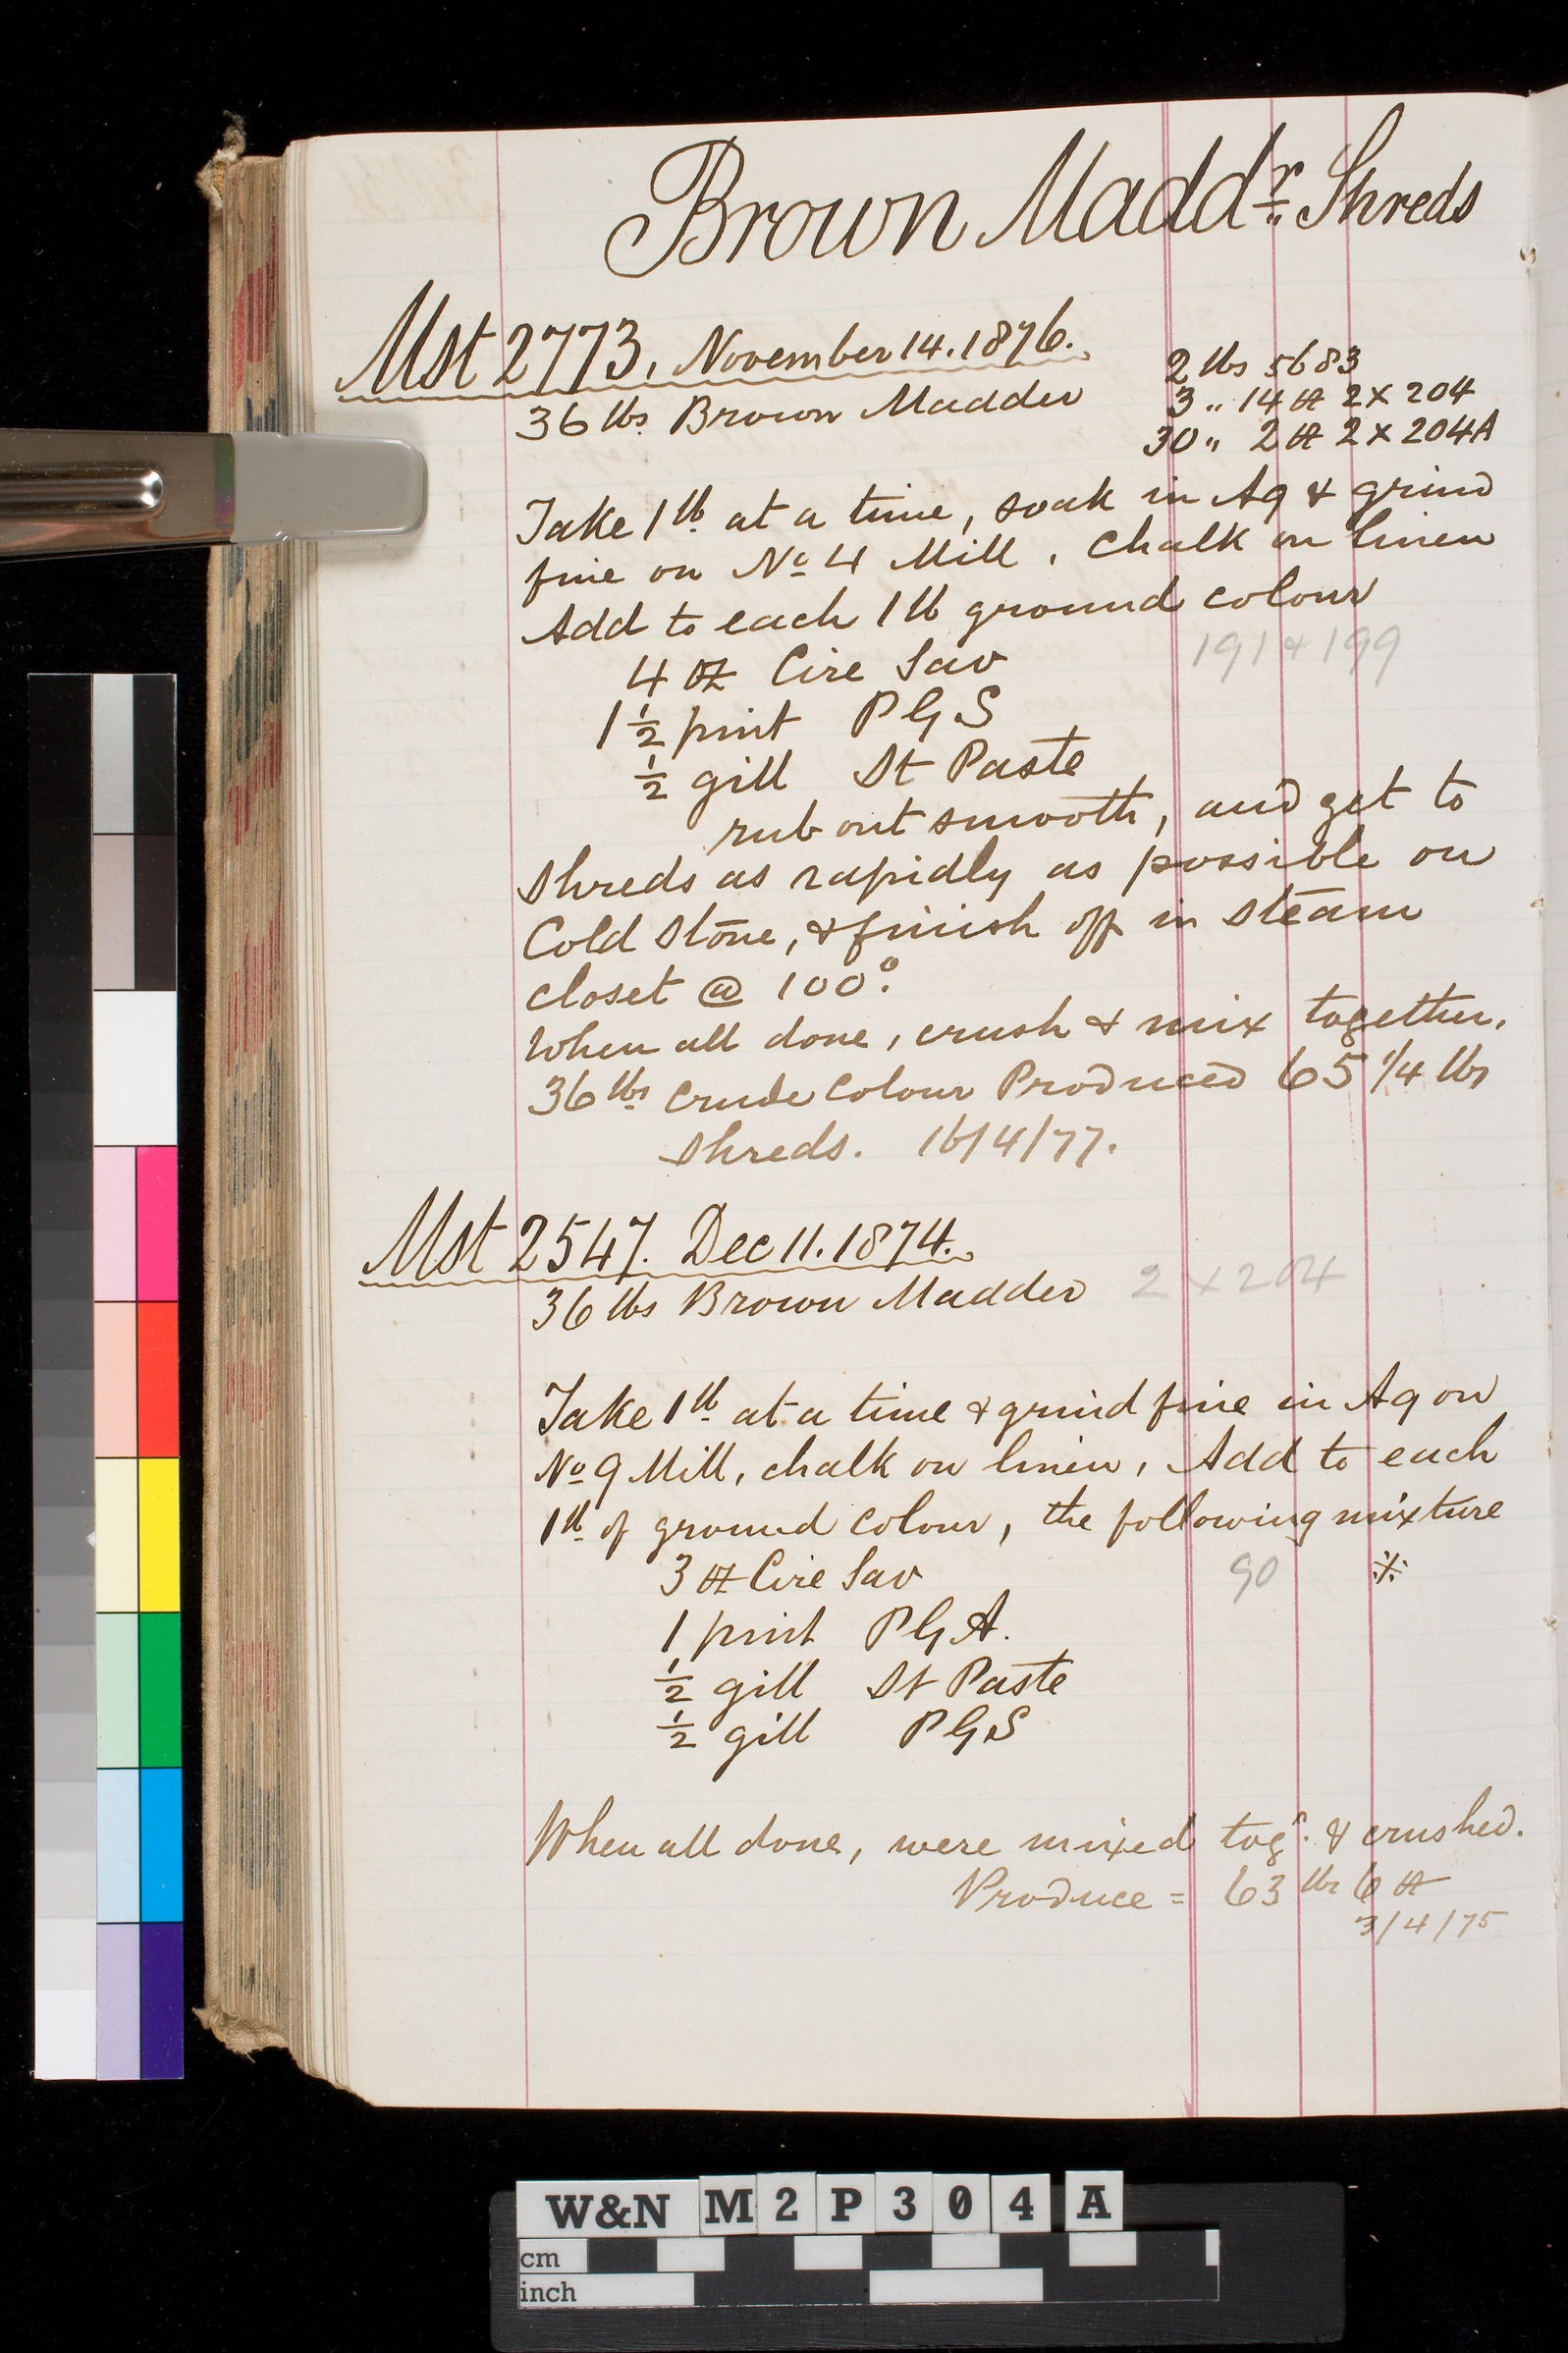 Brown Maddr Shreds
Mst 2773. November 14. 1876.
2 lbs 5683
36 lbs Brown Madder
3 „ 14 oz 2 x 204
30 „ 2 oz 2 x 204A
Take 1 lb at a time, soak in Aq & grind
fine on No 4 Mill. Chalk on linen
Add to each 1 lb ground colour
191 & 199
4 oz Cire Sav
1 1/2 pint P G S
1/2 gill St Paste
rub out smooth, and get to
shreds as rapidly as possible on
Cold Stone, & finish off in steam
closet @ 100°.
When all done, crush & mix together.
36 lbs Crude Colour Produced 65 1/4 lbs
shreds. 16/4/77.
Mst 2547. Dec 11. 1874.
36 lbs Brown Madder 2 x 204
Take 1 lb at a time & grind fine in Aq on
No 9 Mill, chalk on linen, Add to each
1 lb of ground colour, the following mixture
3 oz Cire Sav 90 ※
1 pint P G A.
1/2 gill St Paste
1/2 gill P G S
When all done, were mixed togr. & crushed.
Produce = 63 lbs 6 oz
3/4/75
W&N M2P304A
cm
inch